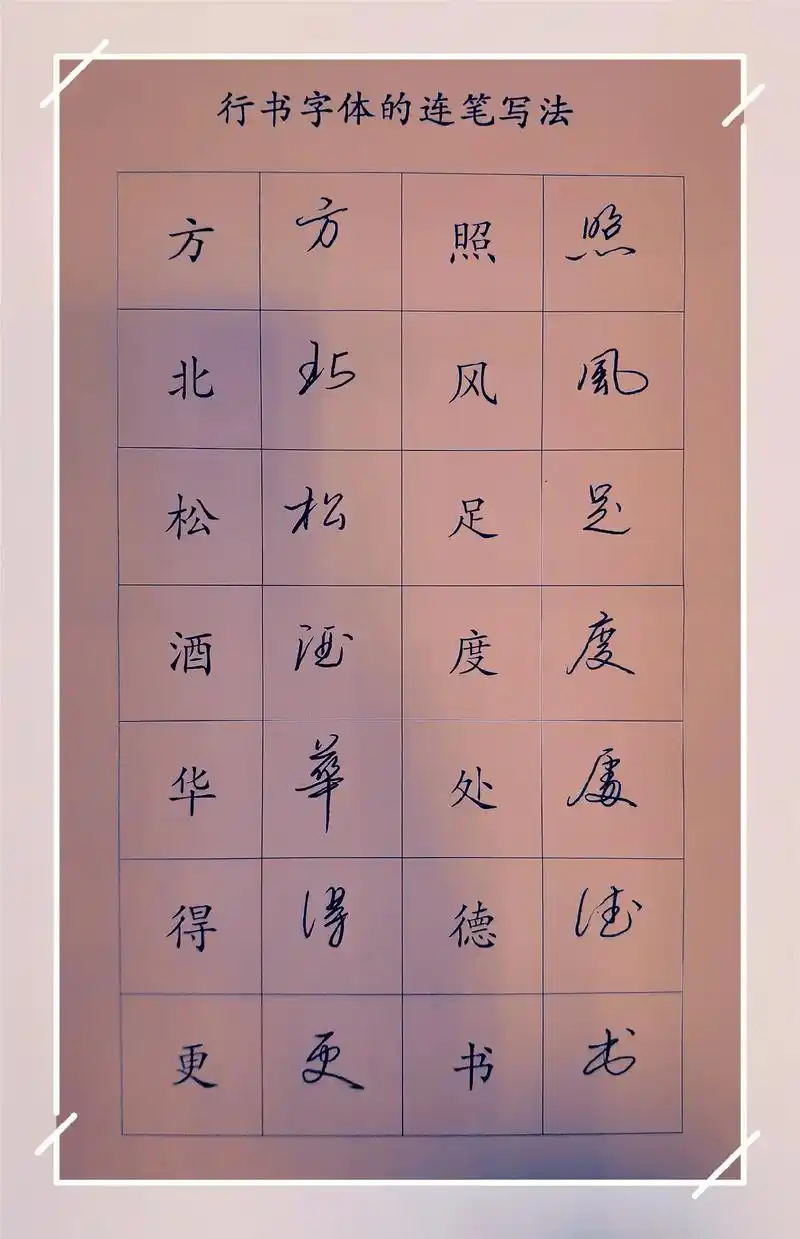 行书字体的连笔写法
方 方 照 照
北 北 风 風
松 松 足 足
酒 酒 度 度
华 華 处 處
得 得 德 德
更 更 书 书